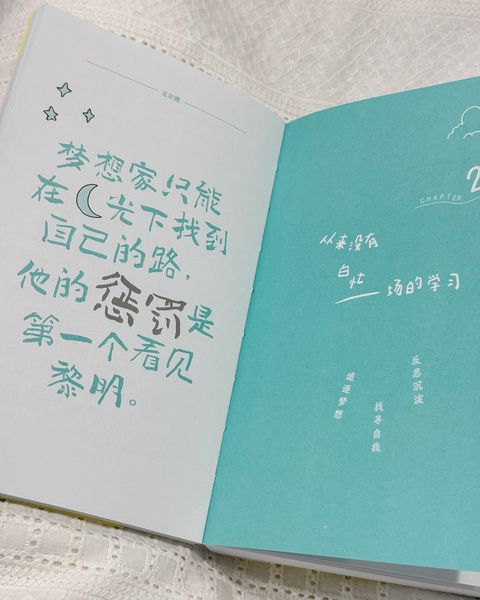 王尔德
梦想家只能
在 光下找到
自己的路，
他的惩罚是
第一个看见
黎明。
2
CHAPTER
从来没有
白忙
一场的学习
反思沉淀
找寻自我
追逐梦想